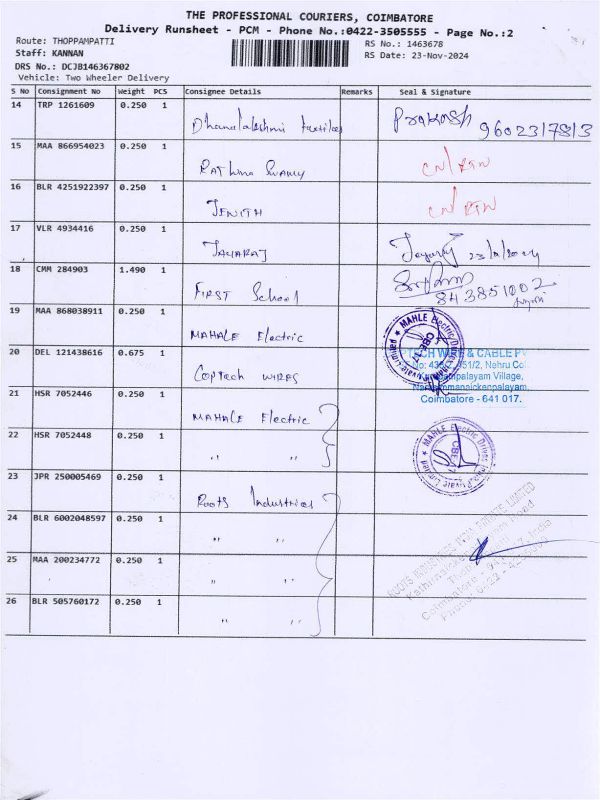 THE PROFESSIONAL COURIERS, COIMBATORE
Delivery Runsheet - PCM - Phone No.:0422-3505555 - Page No.:2
Route: THOPPAMPATTI
RS No.: 1463678
Staff: KANNAN
RS Date: 23-Nov-2024
DRS No.: DCJB146367802
Vehicle: Two Wheeler Delivery
S No Consignment No Weight PCS Consignee Details Remarks Seal & Signature
14 TRP 1261609 0.250 1 Dhanalakshmi textiles Prakash 9602317813
15 MAA 866954023 0.250 1 RAThna SwAmy CN/RTN
16 BLR 4251922397 0.250 1 JENITH CN/RTN
17 VLR 4934416 0.250 1 JAYARAJ
18 CMM 284903 1.490 1 FIRST School 843851002
19 MAA 868038911 0.250 1 MAHALE Electric
MAHLE Electric Drives
20 DEL 121438616 0.675 1 COPTech WIRES
TECH WIRE & CABLE
Nehru
palayam Village,
Coimbatore - 641 017.
21 HSR 7052446 0.250 1 MAHALE Electric
22 HSR 7052448 0.250 1 " "
MAHLE Electric Drives India Private Limited
23 JPR 250005469 0.250 1 Roots Industries
24 BLR 6002048597 0.250 1 " "
ROOTS INDUSTRIES INDIA PRIVATE LIMITED
25 MAA 200234772 0.250 1 " "
26 BLR 505760172 0.250 1 " "